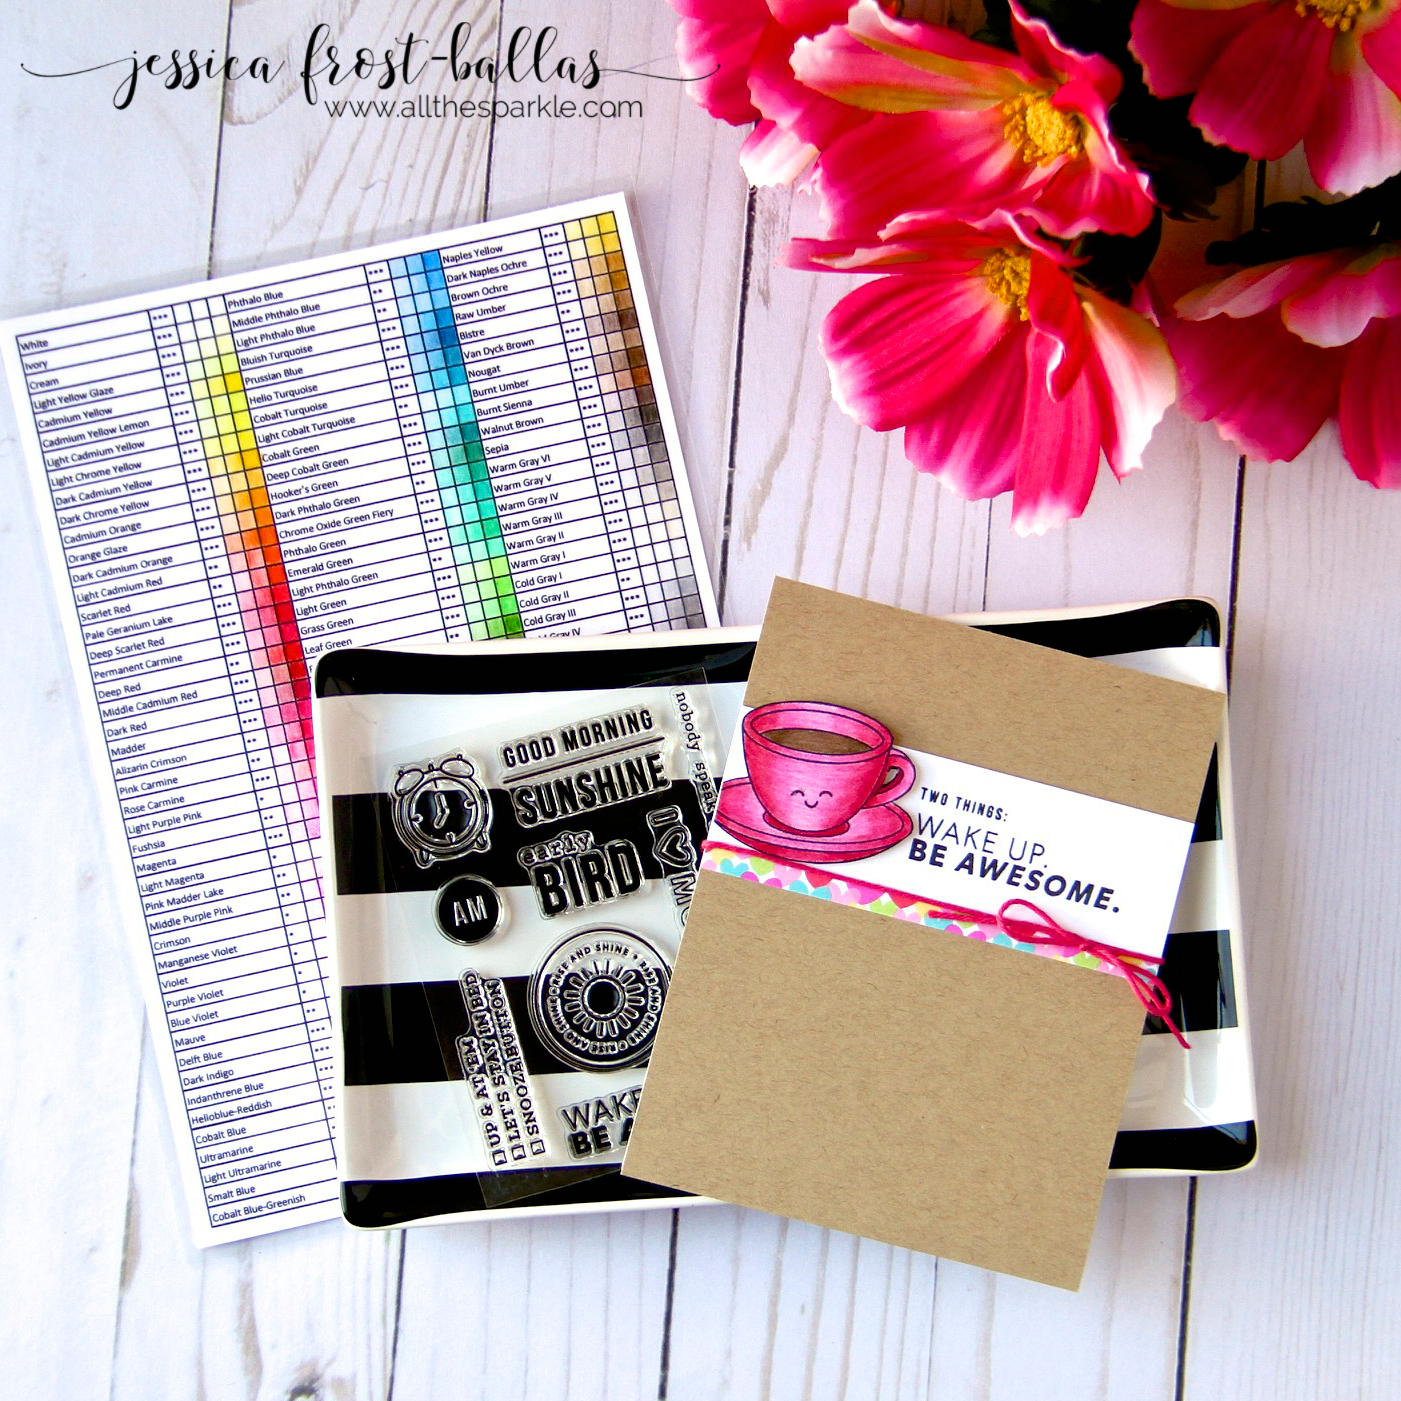 jessica frost-ballas
www.allthesparkle.com
White
Ivory
Cream
Light Yellow Glaze
Cadmium Yellow
Cadmium Yellow Lemon
Light Cadmium Yellow
Light Chrome Yellow
Dark Cadmium Yellow
Dark Chrome Yellow
Cadmium Orange
Orange Glaze
Dark Cadmium Orange
Light Cadmium Red
Scarlet Red
Pale Geranium Lake
Deep Scarlet Red
Permanent Carmine
Deep Red
Middle Cadmium Red
Dark Red
Madder
Alizarin Crimson
Pink Carmine
Rose Carmine
Light Purple Pink
Fushsia
Magenta
Light Magenta
Pink Madder Lake
Middle Purple Pink
Crimson
Manganese Violet
Violet
Purple Violet
Blue Violet
Mauve
Delft Blue
Dark Indigo
Indanthrene Blue
Helioblue-Reddish
Cobalt Blue
Ultramarine
Light Ultramarine
Smalt Blue
Cobalt Blue-Greenish
Phthalo Blue
Middle Phthalo Blue
Light Phthalo Blue
Bluish Turquoise
Prussian Blue
Helio Turquoise
Cobalt Turquoise
Light Cobalt Turquoise
Cobalt Green
Deep Cobalt Green
Hooker's Green
Dark Phthalo Green
Chrome Oxide Green Fiery
Phthalo Green
Emerald Green
Light Phthalo Green
Light Green
Grass Green
Leaf Green
Naples Yellow
Dark Naples Ochre
Brown Ochre
Raw Umber
Bistre
Van Dyck Brown
Nougat
Burnt Umber
Burnt Sienna
Walnut Brown
Sepia
Warm Gray VI
Warm Gray V
Warm Gray IV
Warm Gray III
Warm Gray II
Warm Gray I
Cold Gray I
Cold Gray II
Cold Gray III
GOOD MORNING
SUNSHINE
nobody speak
early
BIRD
AM
I
RISE AND SHINE
UP & AT 'EM
LET'S STAY IN BED
SNOOZE BUTTON
WAKE
BE
TWO THINGS:
WAKE UP.
BE AWESOME.